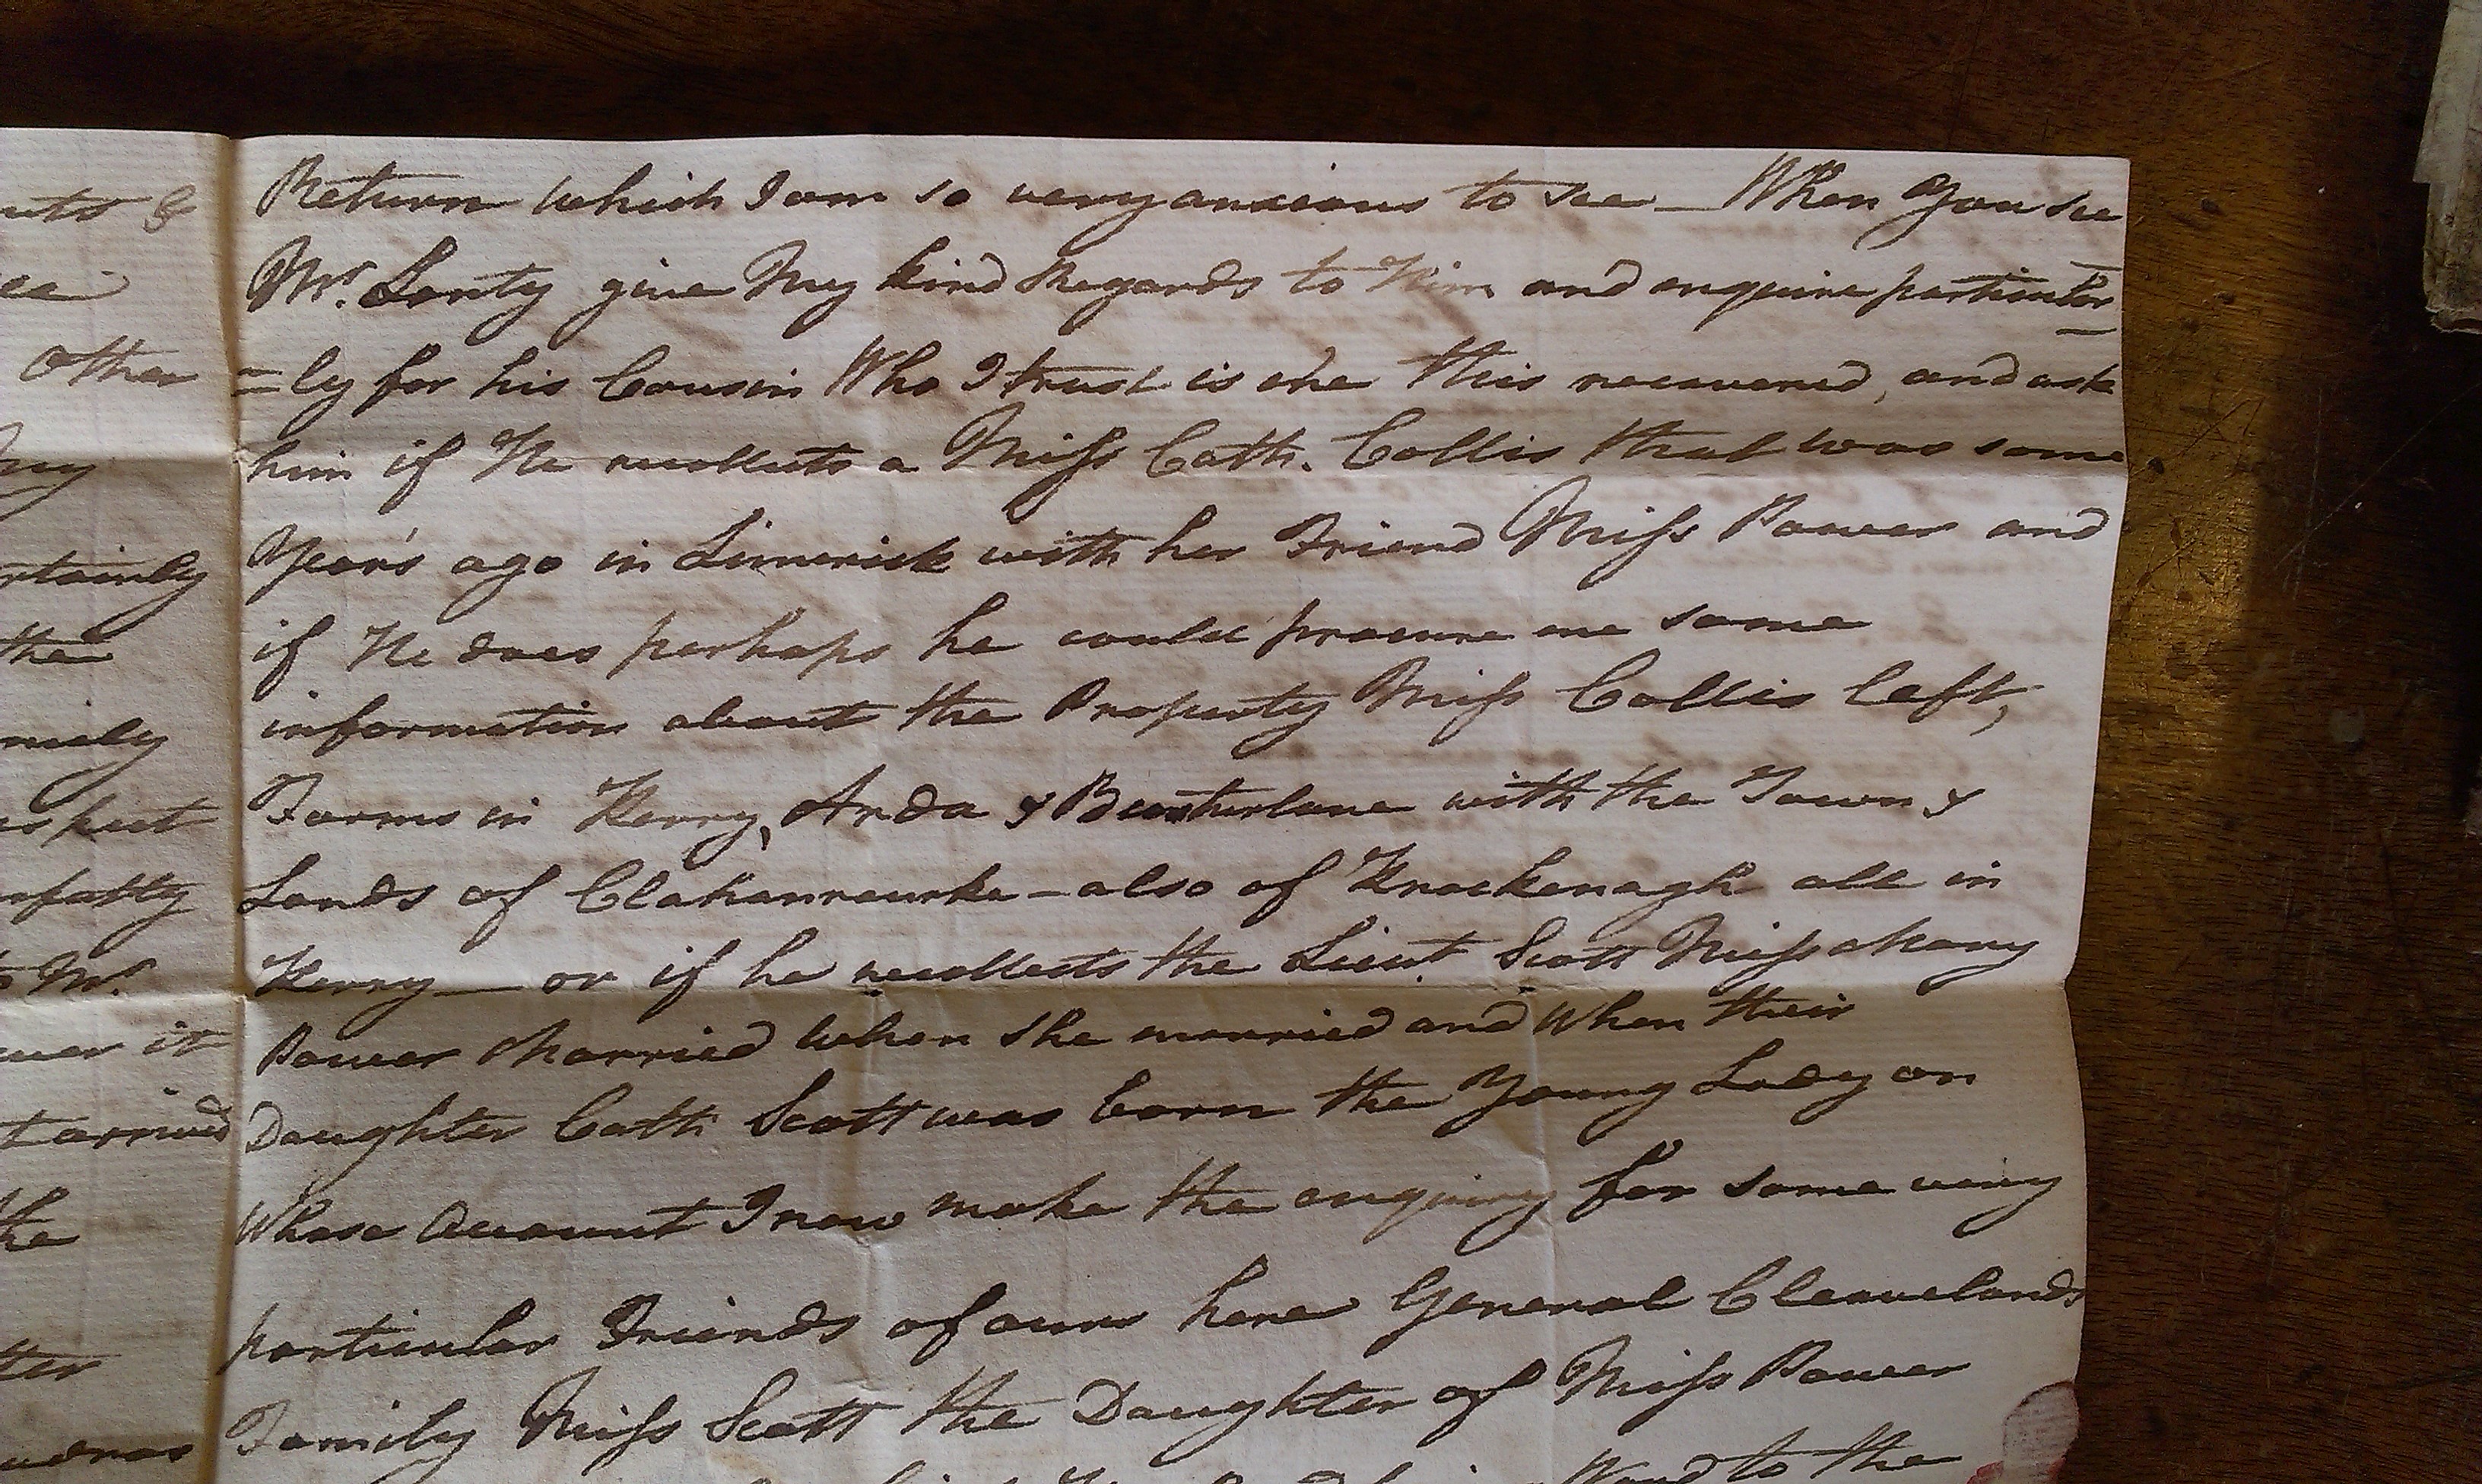 uts &
other
my
rtainly
the
mily
spect
to Mr.
ever it
t arrived
the
tter
Return which I am so very anxious to see — When You see
Mr. Lonty give My kind Regards to Him and enquire particular
=ly for his Cousin Who I trust is ere this recovered, and ask
him if He recollects a Miss Cath. Collis that was some
Years ago in Limerick with her Friend Miss Power and
if He does perhaps he could procure me some
information about the Property Miss Collis left,
Farms in Kerry, Arda & Beenturlane with the Town &
Lands of Clahanrourke – also of Knockenagh all in
Kerry — or if he recollects the Lieut. Scott Miss Mary
Power Married when She married and When their
Daughter Cath Scott was born the Young Lady on
Whose Account I now make the enquiry for some very
particular Friends of ours here General Cleavelands
Family Miss Scott the Daughter of Miss Power
Ward to the